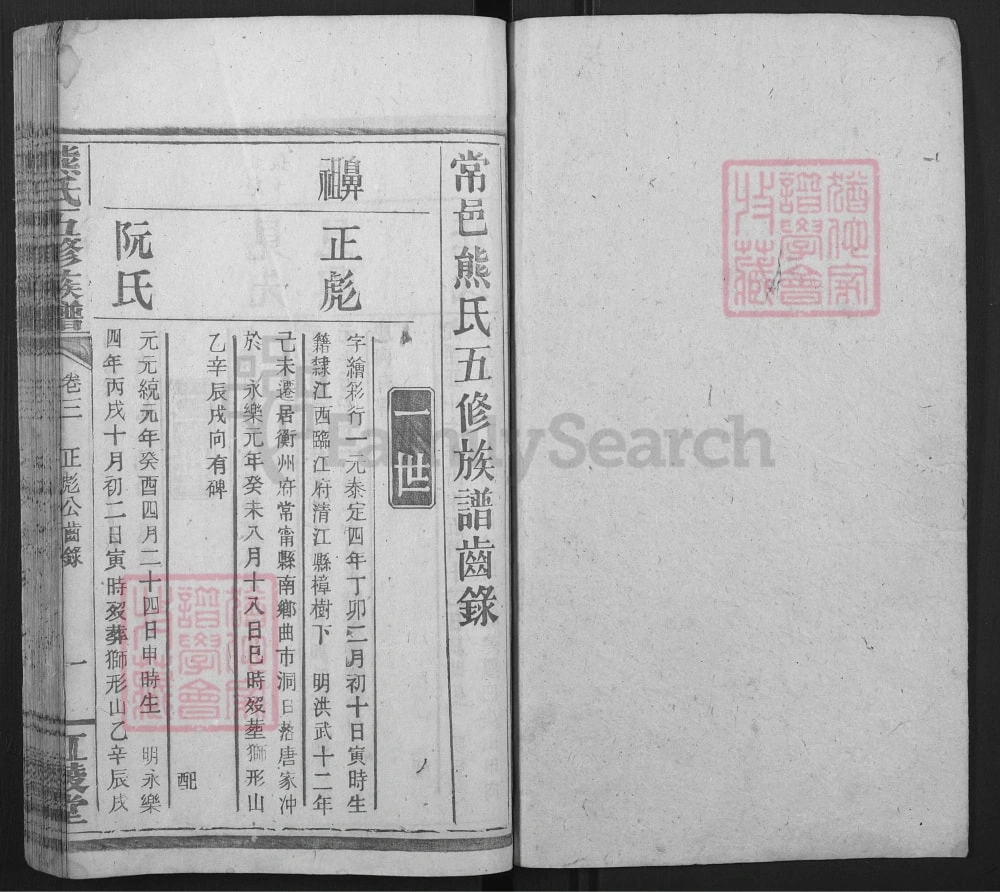 常邑熊氏五修族譜齒錄
一世
鼻祖
正彪
字繪彩行一元泰定四年丁卯二月初十日寅時生
籍隸江西臨江府清江縣樟樹下 明洪武十二年
己未遷居衡州府常甯縣南鄉曲市洞日落唐家冲
於 永樂元年癸未八月十八日巳時歿塟獅形山
乙辛辰戌向有碑
配
阮氏
元元統元年癸酉四月二十四日申時生 明永樂
四年丙戌十月初二日寅時歿葬獅形山乙辛辰戌
熊氏五修族譜
卷三 正彪公齒錄
一
江陵堂
譜學會
藏
譜學會
藏
FamilySearch